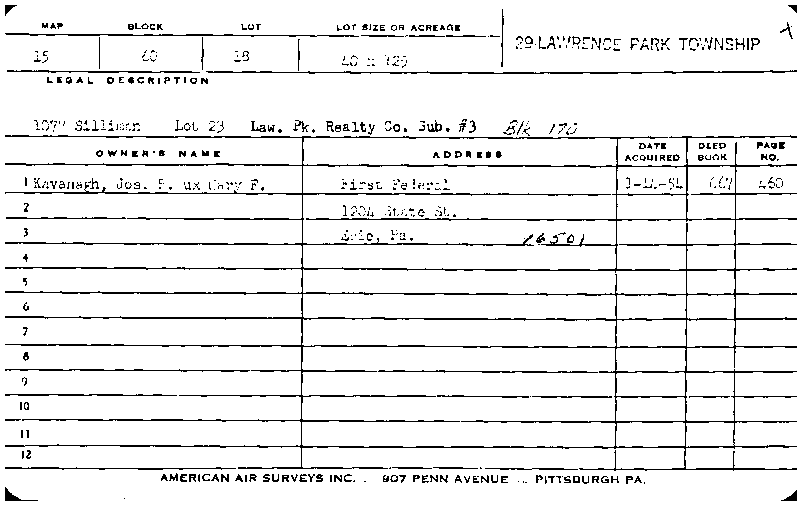 MAP BLOCK LOT LOT SIZE OR ACREAGE
29-LAWRENCE PARK TOWNSHIP X
15 60 18 40 x 125
LEGAL DESCRIPTION
Silliman Lot 23 Law. Pk. Realty Co. Sub. #3 Blk 170
OWNER'S NAME ADDRESS DATE ACQUIRED DEED BOOK PAGE NO.
1 Kavanagh, Jos. ux F. First Federal 667 460
2 1204 State St.
3 Erie, Pa. 16501
4
5
6
7
8
9
10
11
12
AMERICAN AIR SURVEYS INC. . 907 PENN AVENUE ... PITTSBURGH PA.